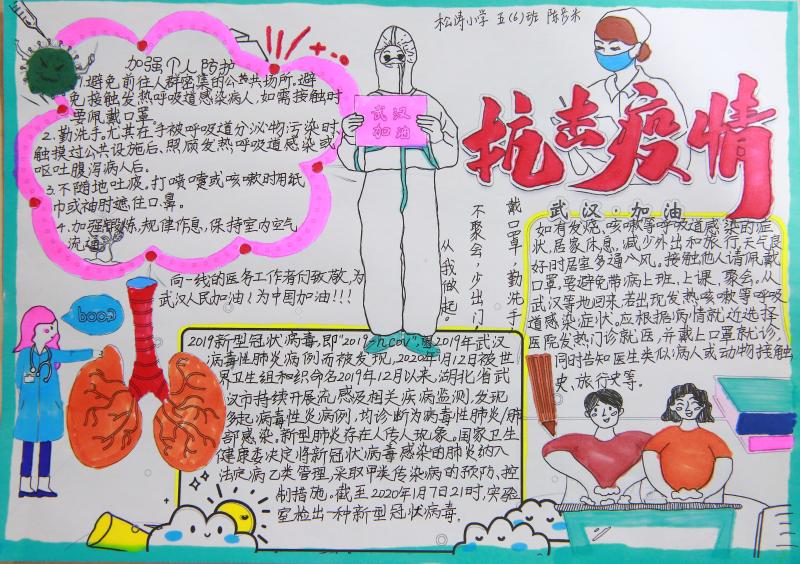 松涛小学 五(6)班 陈
加强个人防护
1.避免前往人群密集的公共场所。避
免接触发热呼吸道感染病人,如需接触时
要佩戴口罩。
2.勤洗手。尤其在手被呼吸道分泌物污染时、
触摸过公共设施后、照顾发热呼吸道感染或
呕吐腹泻病人后。
3.不随地吐痰,打喷嚏或咳嗽时用纸
巾或袖肘遮住口鼻。
4.加强锻炼,规律作息,保持室内空气
流通。
武汉
加油
抗击疫情
戴口罩,勤洗手,
不聚会,少出门,
从我做起。
向一线的医务工作者们致敬,为
武汉人民加油!为中国加油!!!
good
武汉·加油
如有发烧、咳嗽等呼吸道感染的症
状,居家休息,减少外出和旅行,天气良
好时居室多通风,接触他人请佩戴
口罩,要避免带病上班,上课、聚会。从
武汉等地回来,若出现发热咳嗽等呼吸
道感染症状。应根据病情就近选择
医院发热门诊就医,并戴上口罩就诊,
同时告知医生类似病人或动物接触
史、旅行史等。
2019新型冠状病毒,即"2019-ncov",因2019年武汉
病毒性肺炎病例而被发现,2020年1月12日被世
界卫生组和织命名2019年12月以来,湖北省武
汉市持续开展流感及相关疾病监测,发现
多起病毒性炎病例,均诊断为病毒性肺炎/肺
部感染。新型肺炎存在人传人现象。国家卫生
健康委决定将新冠状病毒感染的肺炎纳入
法定病乙类管理,采取甲类传染病的预防、控
制措施。截至2020年1月7日21时,实验
室检出一种新型冠状病毒.